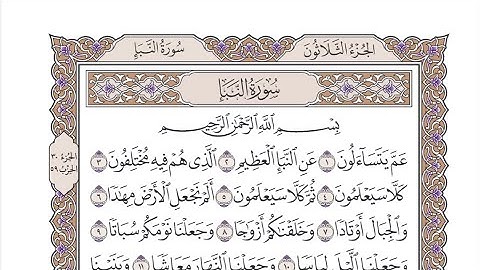 الجُزْءُ الثَّلَاثُونَ
سُورَةُ النَّبَإِ
سُورَةُ النَّبَإِ
بِسْمِ اللَّهِ الرَّحْمَٰنِ الرَّحِيمِ
عَمَّ يَتَسَآءَلُونَ ١ عَنِ النَّبَإِ الْعَظِيمِ ٢ الَّذِي هُمْ فِيهِ مُخْتَلِفُونَ ٣
كَلَّا سَيَعْلَمُونَ ٤ ثُمَّ كَلَّا سَيَعْلَمُونَ ٥ أَلَمْ نَجْعَلِ الْأَرْضَ مِهَٰدًا ٦
وَالْجِبَالَ أَوْتَادًا ٧ وَخَلَقْنَٰكُمْ أَزْوَٰجًا ٨ وَجَعَلْنَا نَوْمَكُمْ سُبَاتًا ٩
وَجَعَلْنَا الَّيْلَ لِبَاسًا ١٠ وَجَعَلْنَا النَّهَارَ مَعَاشًا ١١ وَبَنَيْنَا
الجُزْءُ ٣٠
الحِزْبُ ٥٩